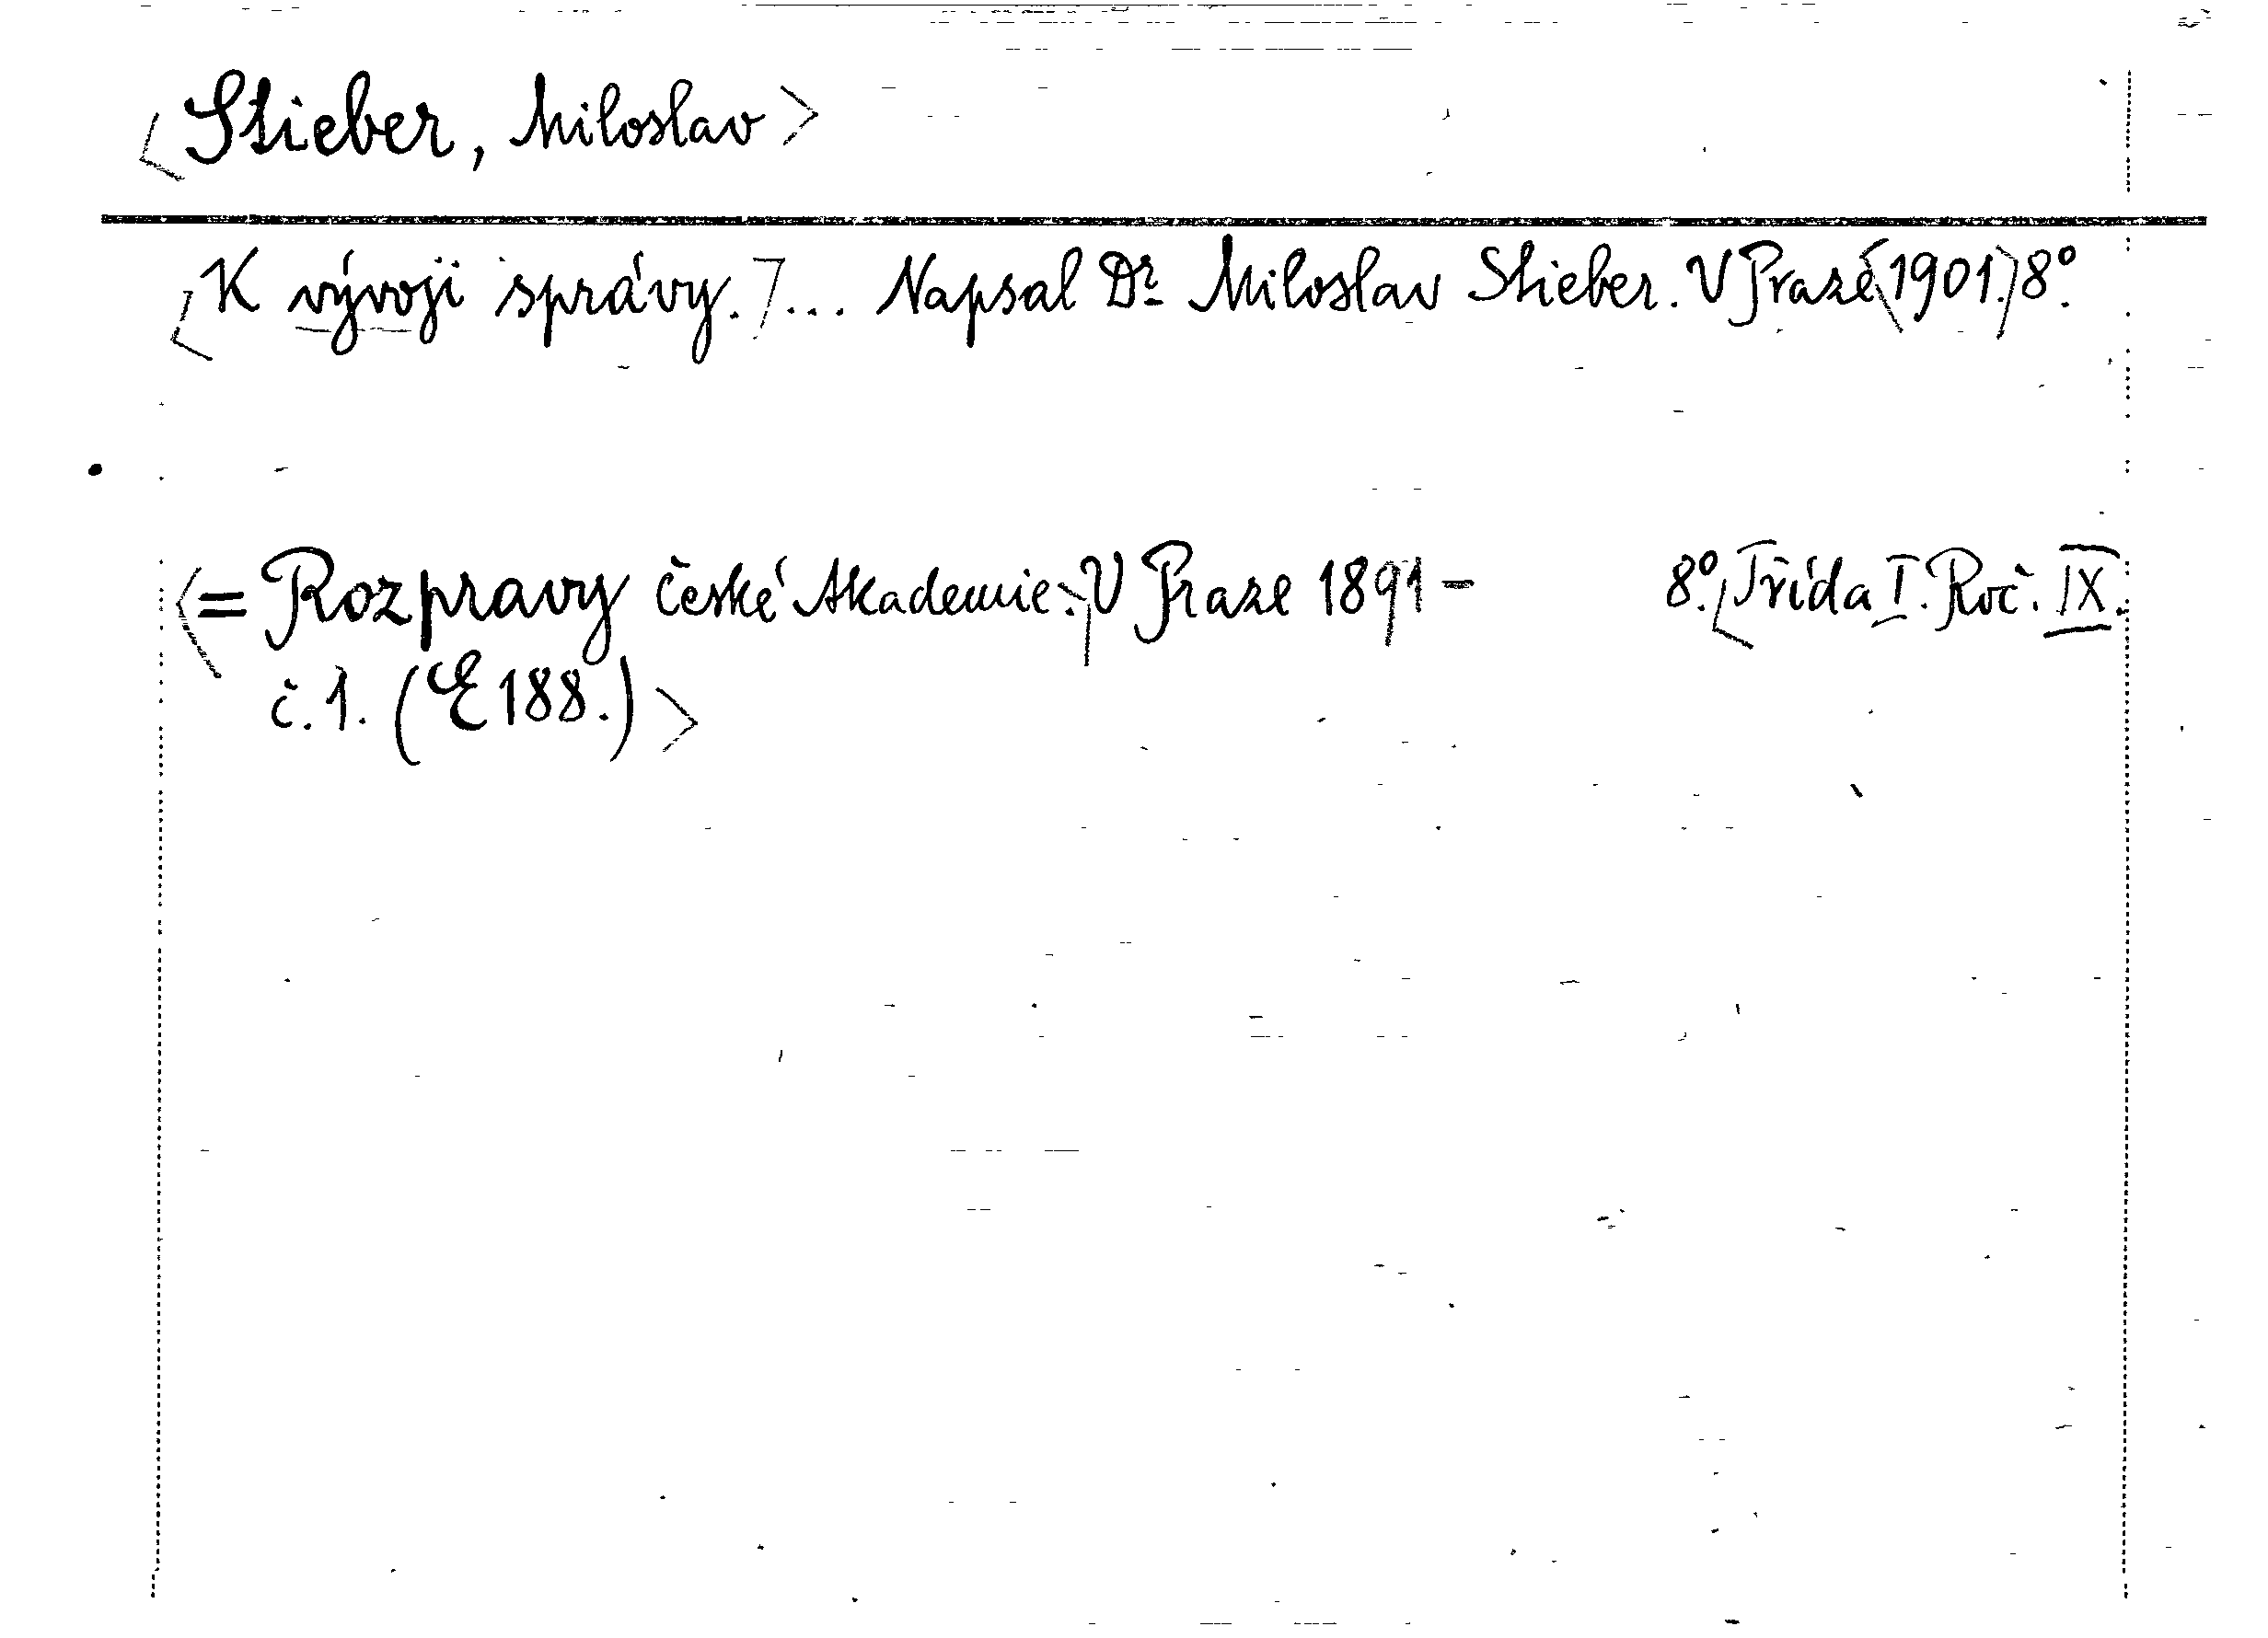 <Stieber, Miloslav>
K vývoji správy. ... Napsal Dr. Miloslav Stieber. V Praze 1901. 8º.
= Rozpravy České Akademie. V Praze 1891 – 8º. Třída I. Roč. IX.
č. 1. (E 188.)>